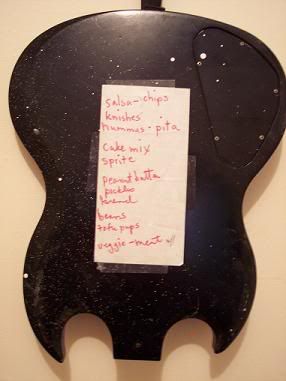 salsa - chips
knishes
hummus - pita
cake mix
sprite
peanut butta
pickles
bread
beans
tofu pups
veggie - meat